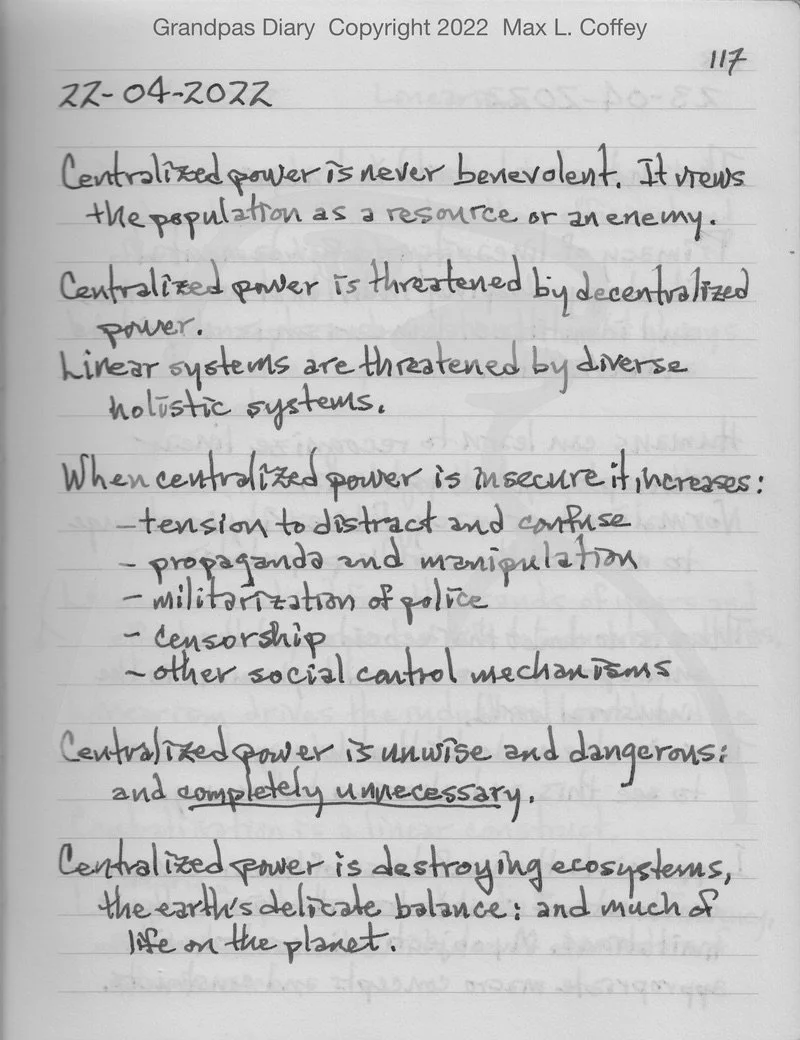 Grandpas Diary Copyright 2022 Max L. Coffey
117
22-04-2022
Centralized power is never benevolent. It views
the population as a resource or an enemy.
Centralized power is threatened by decentralized
power.
Linear systems are threatened by diverse
holistic systems.
When centralized power is insecure it, increases:
- tension to distract and confuse
- propaganda and manipulation
- militarization of police
- censorship
- other social control mechanisms
Centralized power is unwise and dangerous:
and completely unnecessary.
Centralized power is destroying ecosystems,
the earth's delicate balance: and much of
life on the planet.